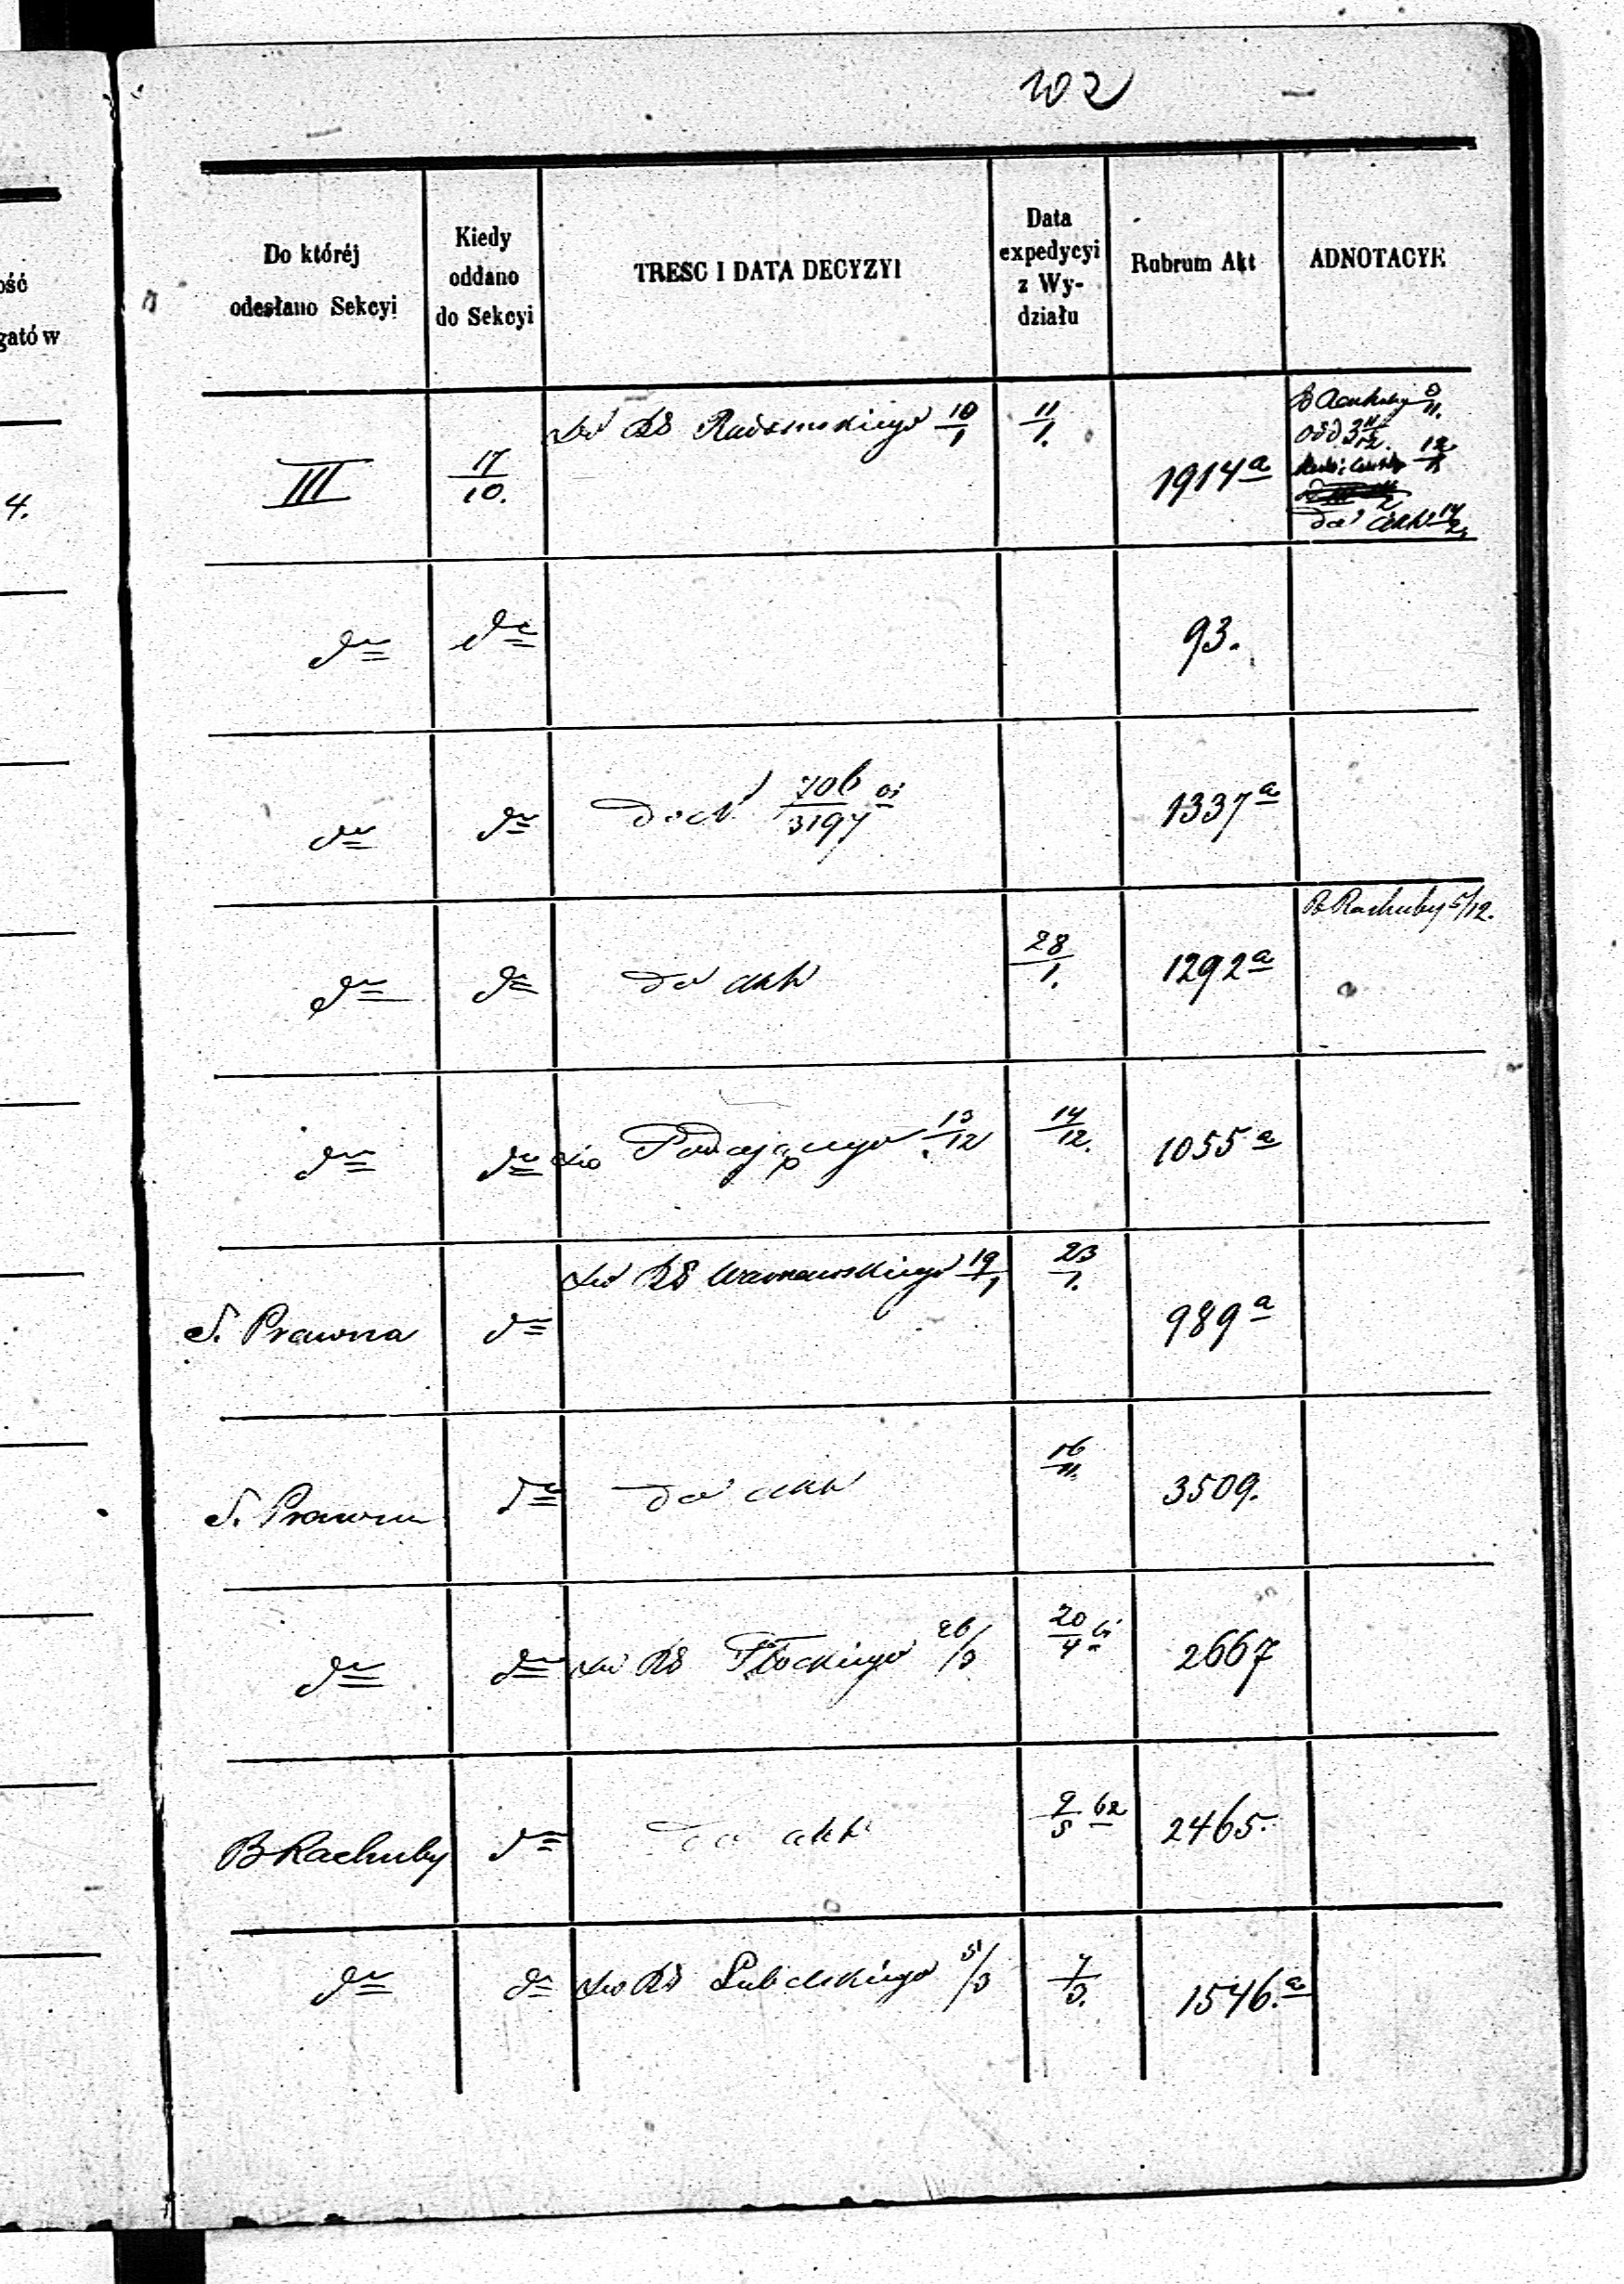 102
ość
gatów
4.
Do któréj odesłano Sekcyi
Kiedy oddano do Sekcyi
TRESC I DATA DECYZYI
Data expedycyi z Wydziału
Rubrum Akt
ADNOTACYE
III 17/10. Do RG Radomskiego 10/1 11/1. 1914a B Rachuby 8/11.
odd 3 11/12.
12/1
do akt 14/2.
do do 93.
do do do N 706/3197 1337a
do do do akt 28/1. 1292a B Rachuby 5/12.
do do do Podającego 13/12 14/12. 1055a
S. Prawna do Do RG Warszawskiego 19/1 23/1. 989a
S. Prawna do do akt 16/11. 3509.
do do Do RG Płockiego 26/3 20/4 2667
B Rachuby do do akt 9/5 62 2465.
do do Do RG Lubelskiego 5/3 7/3. 1546.a